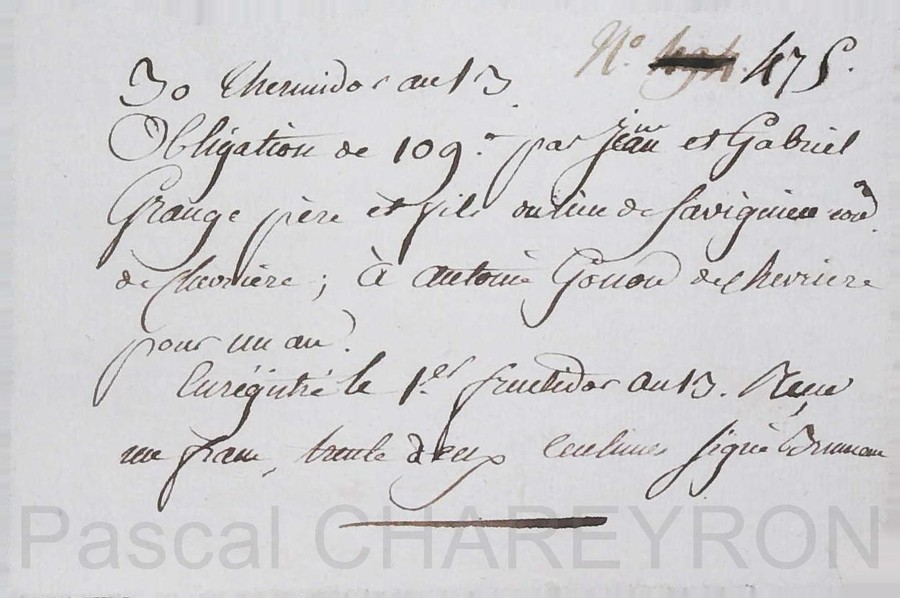 N° 475.
30 thermidor an 13
Obligation de 109.^f par Jean et Gabriel
Grange père et fils du lieu de Savignieu
de Chevriere ; à antoine Gonon de Chevriere
pour un an.
Enrégistré le 1.^er fructidor an 13. Reçu
un franc, trente deux Centimes signé
Pascal CHAREYRON